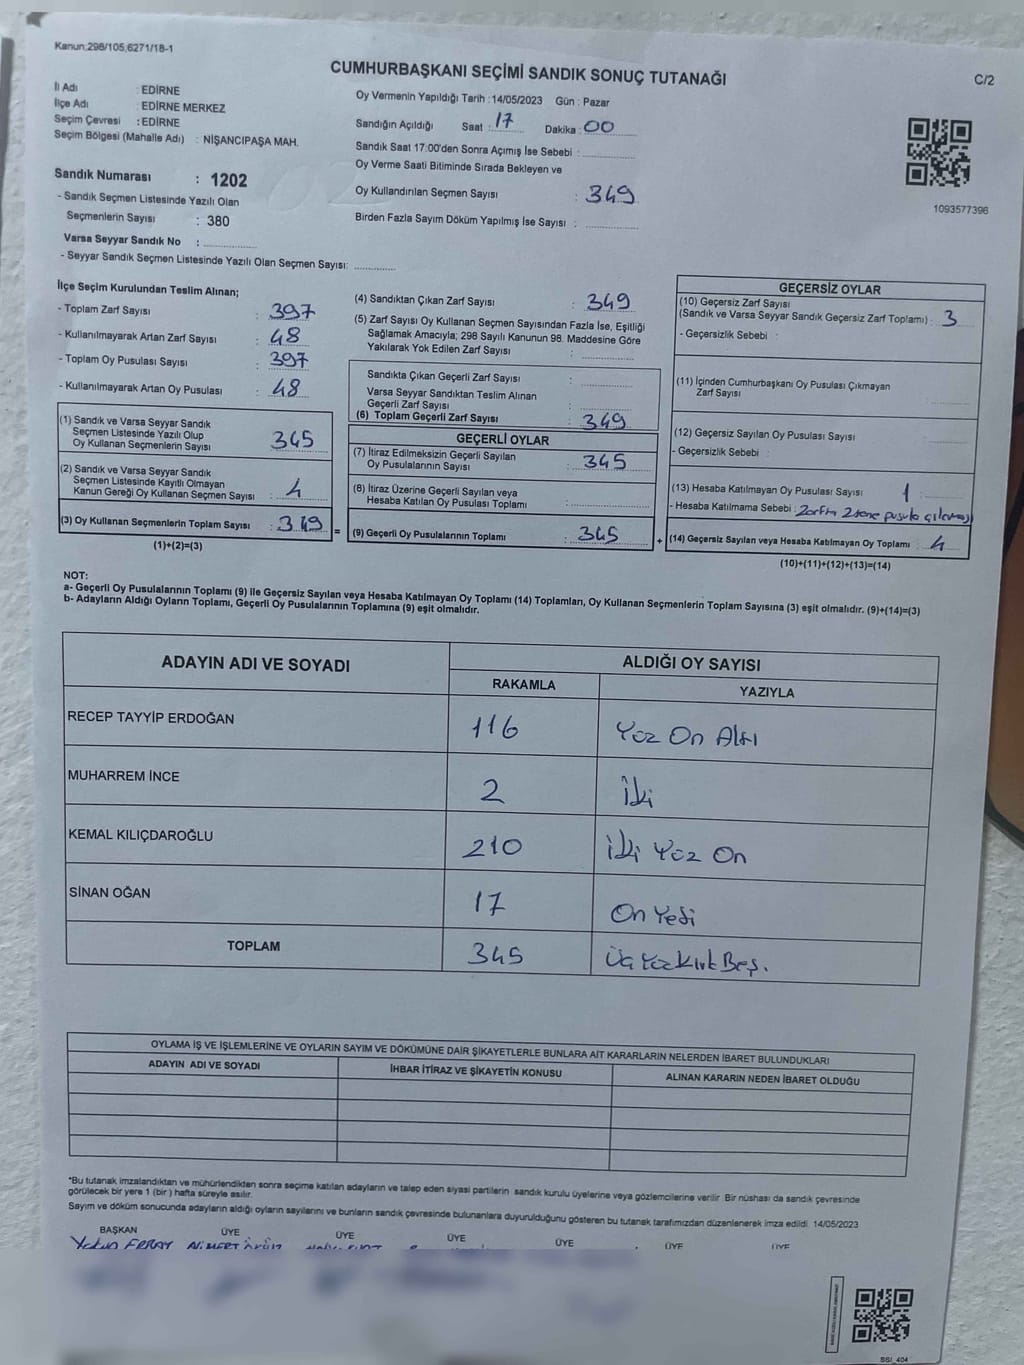 Kanun;298/105;6271/18-1
CUMHURBAŞKANI SEÇİMİ SANDIK SONUÇ TUTANAĞI
C/2
İl Adı : EDİRNE
İlçe Adı : EDİRNE MERKEZ
Seçim Çevresi : EDİRNE
Seçim Bölgesi (Mahalle Adı) : NİŞANCIPAŞA MAH.
Sandık Numarası : 1202
- Sandık Seçmen Listesinde Yazılı Olan
Seçmenlerin Sayısı : 380
Varsa Seyyar Sandık No :
- Seyyar Sandık Seçmen Listesinde Yazılı Olan Seçmen Sayısı:
Oy Vermenin Yapıldığı Tarih : 14/05/2023 Gün : Pazar
Sandığın Açıldığı Saat : 17 Dakika : 00
Sandık Saat 17:00'den Sonra Açımış İse Sebebi :
Oy Verme Saati Bitiminde Sırada Bekleyen ve
Oy Kullandırılan Seçmen Sayısı : 349
Birden Fazla Sayım Döküm Yapılmış İse Sayısı :
1093577396
İlçe Seçim Kurulundan Teslim Alınan;
- Toplam Zarf Sayısı : 397
- Kullanılmayarak Artan Zarf Sayısı : 48
- Toplam Oy Pusulası Sayısı : 397
- Kullanılmayarak Artan Oy Pusulası : 48
(1) Sandık ve Varsa Seyyar Sandık
Seçmen Listesinde Yazılı Olup
Oy Kullanan Seçmenlerin Sayısı : 345
(2) Sandık ve Varsa Seyyar Sandık
Seçmen Listesinde Kayıtlı Olmayan
Kanun Gereği Oy Kullanan Seçmen Sayısı : 4
(3) Oy Kullanan Seçmenlerin Toplam Sayısı : 349 =
(1)+(2)=(3)
(4) Sandıktan Çıkan Zarf Sayısı : 349
(5) Zarf Sayısı Oy Kullanan Seçmen Sayısından Fazla İse, Eşitliği
Sağlamak Amacıyla; 298 Sayılı Kanunun 98. Maddesine Göre
Yakılarak Yok Edilen Zarf Sayısı :
Sandıkta Çıkan Geçerli Zarf Sayısı :
Varsa Seyyar Sandıktan Teslim Alınan
Geçerli Zarf Sayısı :
(6) Toplam Geçerli Zarf Sayısı : 349
GEÇERLİ OYLAR
(7) İtiraz Edilmeksizin Geçerli Sayılan
Oy Pusulalarının Sayısı : 345
(8) İtiraz Üzerine Geçerli Sayılan veya
Hesaba Katılan Oy Pusulaları Toplamı :
(9) Geçerli Oy Pusulalarının Toplamı : 345 +
GEÇERSİZ OYLAR
(10) Geçersiz Zarf Sayısı
(Sandık ve Varsa Seyyar Sandık Geçersiz Zarf Toplamı) : 3
- Geçersizlik Sebebi :
(11) İçinden Cumhurbaşkanı Oy Pusulası Çıkmayan
Zarf Sayısı :
(12) Geçersiz Sayılan Oy Pusulası Sayısı :
- Geçersizlik Sebebi :
(13) Hesaba Katılmayan Oy Pusulası Sayısı : 1
- Hesaba Katılmama Sebebi : Zarftan 2 tane pusula çıkması
(14) Geçersiz Sayılan veya Hesaba Katılmayan Oy Toplamı : 4
(10)+(11)+(12)+(13)=(14)
NOT:
a- Geçerli Oy Pusulalarının Toplamı (9) ile Geçersiz Sayılan veya Hesaba Katılmayan Oy Toplamı (14) Toplamları, Oy Kullanan Seçmenlerin Toplam Sayısına (3) eşit olmalıdır. (9)+(14)=(3)
b- Adayların Aldığı Oyların Toplamı, Geçerli Oy Pusulalarının Toplamına (9) eşit olmalıdır.
ADAYIN ADI VE SOYADI
ALDIĞI OY SAYISI
RAKAMLA YAZIYLA
RECEP TAYYİP ERDOĞAN 116 Yüz On Altı
MUHARREM İNCE 2 İki
KEMAL KILIÇDAROĞLU 210 İki Yüz On
SİNAN OĞAN 17 On Yedi
TOPLAM 345 Üç Yüz Kırk Beş.
OYLAMA İŞ VE İŞLEMLERİNE VE OYLARIN SAYIM VE DÖKÜMÜNE DAİR ŞİKAYETLERLE BUNLARA AİT KARARLARIN NELERDEN İBARET BULUNDUKLARI
ADAYIN ADI VE SOYADI İHBAR İTİRAZ VE ŞİKAYETİN KONUSU ALINAN KARARIN NEDEN İBARET OLDUĞU
*Bu tutanak imzalandıktan ve mühürlendikten sonra seçime katılan adayların ve talep eden siyasi partilerin sandık kurulu üyelerine veya gözlemcilerine verilir. Bir nüshası da sandık çevresinde
görülecek bir yere 1 (bir) hafta süreyle asılır.
Sayım ve döküm sonucunda adayların aldığı oyların sayılarını ve bunların sandık çevresinde bulunanlara duyurulduğunu gösteren bu tutanak tarafımızdan düzenlenerek imza edildi. 14/05/2023
BAŞKAN ÜYE ÜYE ÜYE ÜYE ÜYE ÜYE